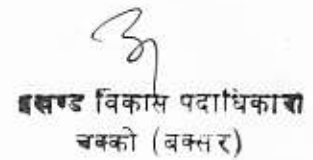 प्रखण्ड विकास पदाधिकारी
चक्की (बक्सर)